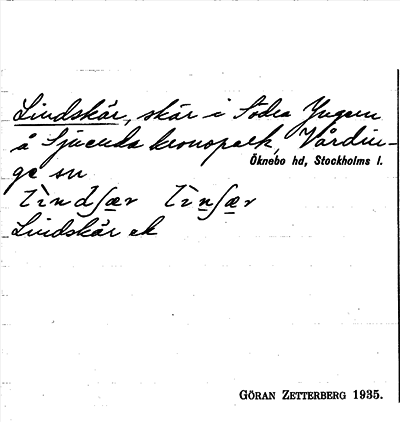 Lindskär, skär i Södra Yngern
å Sjuenda kronopark, Vårdin-
Öknebo hd, Stockholms l.
ge sn
Lindskär ek
GÖRAN ZETTERBERG 1935.